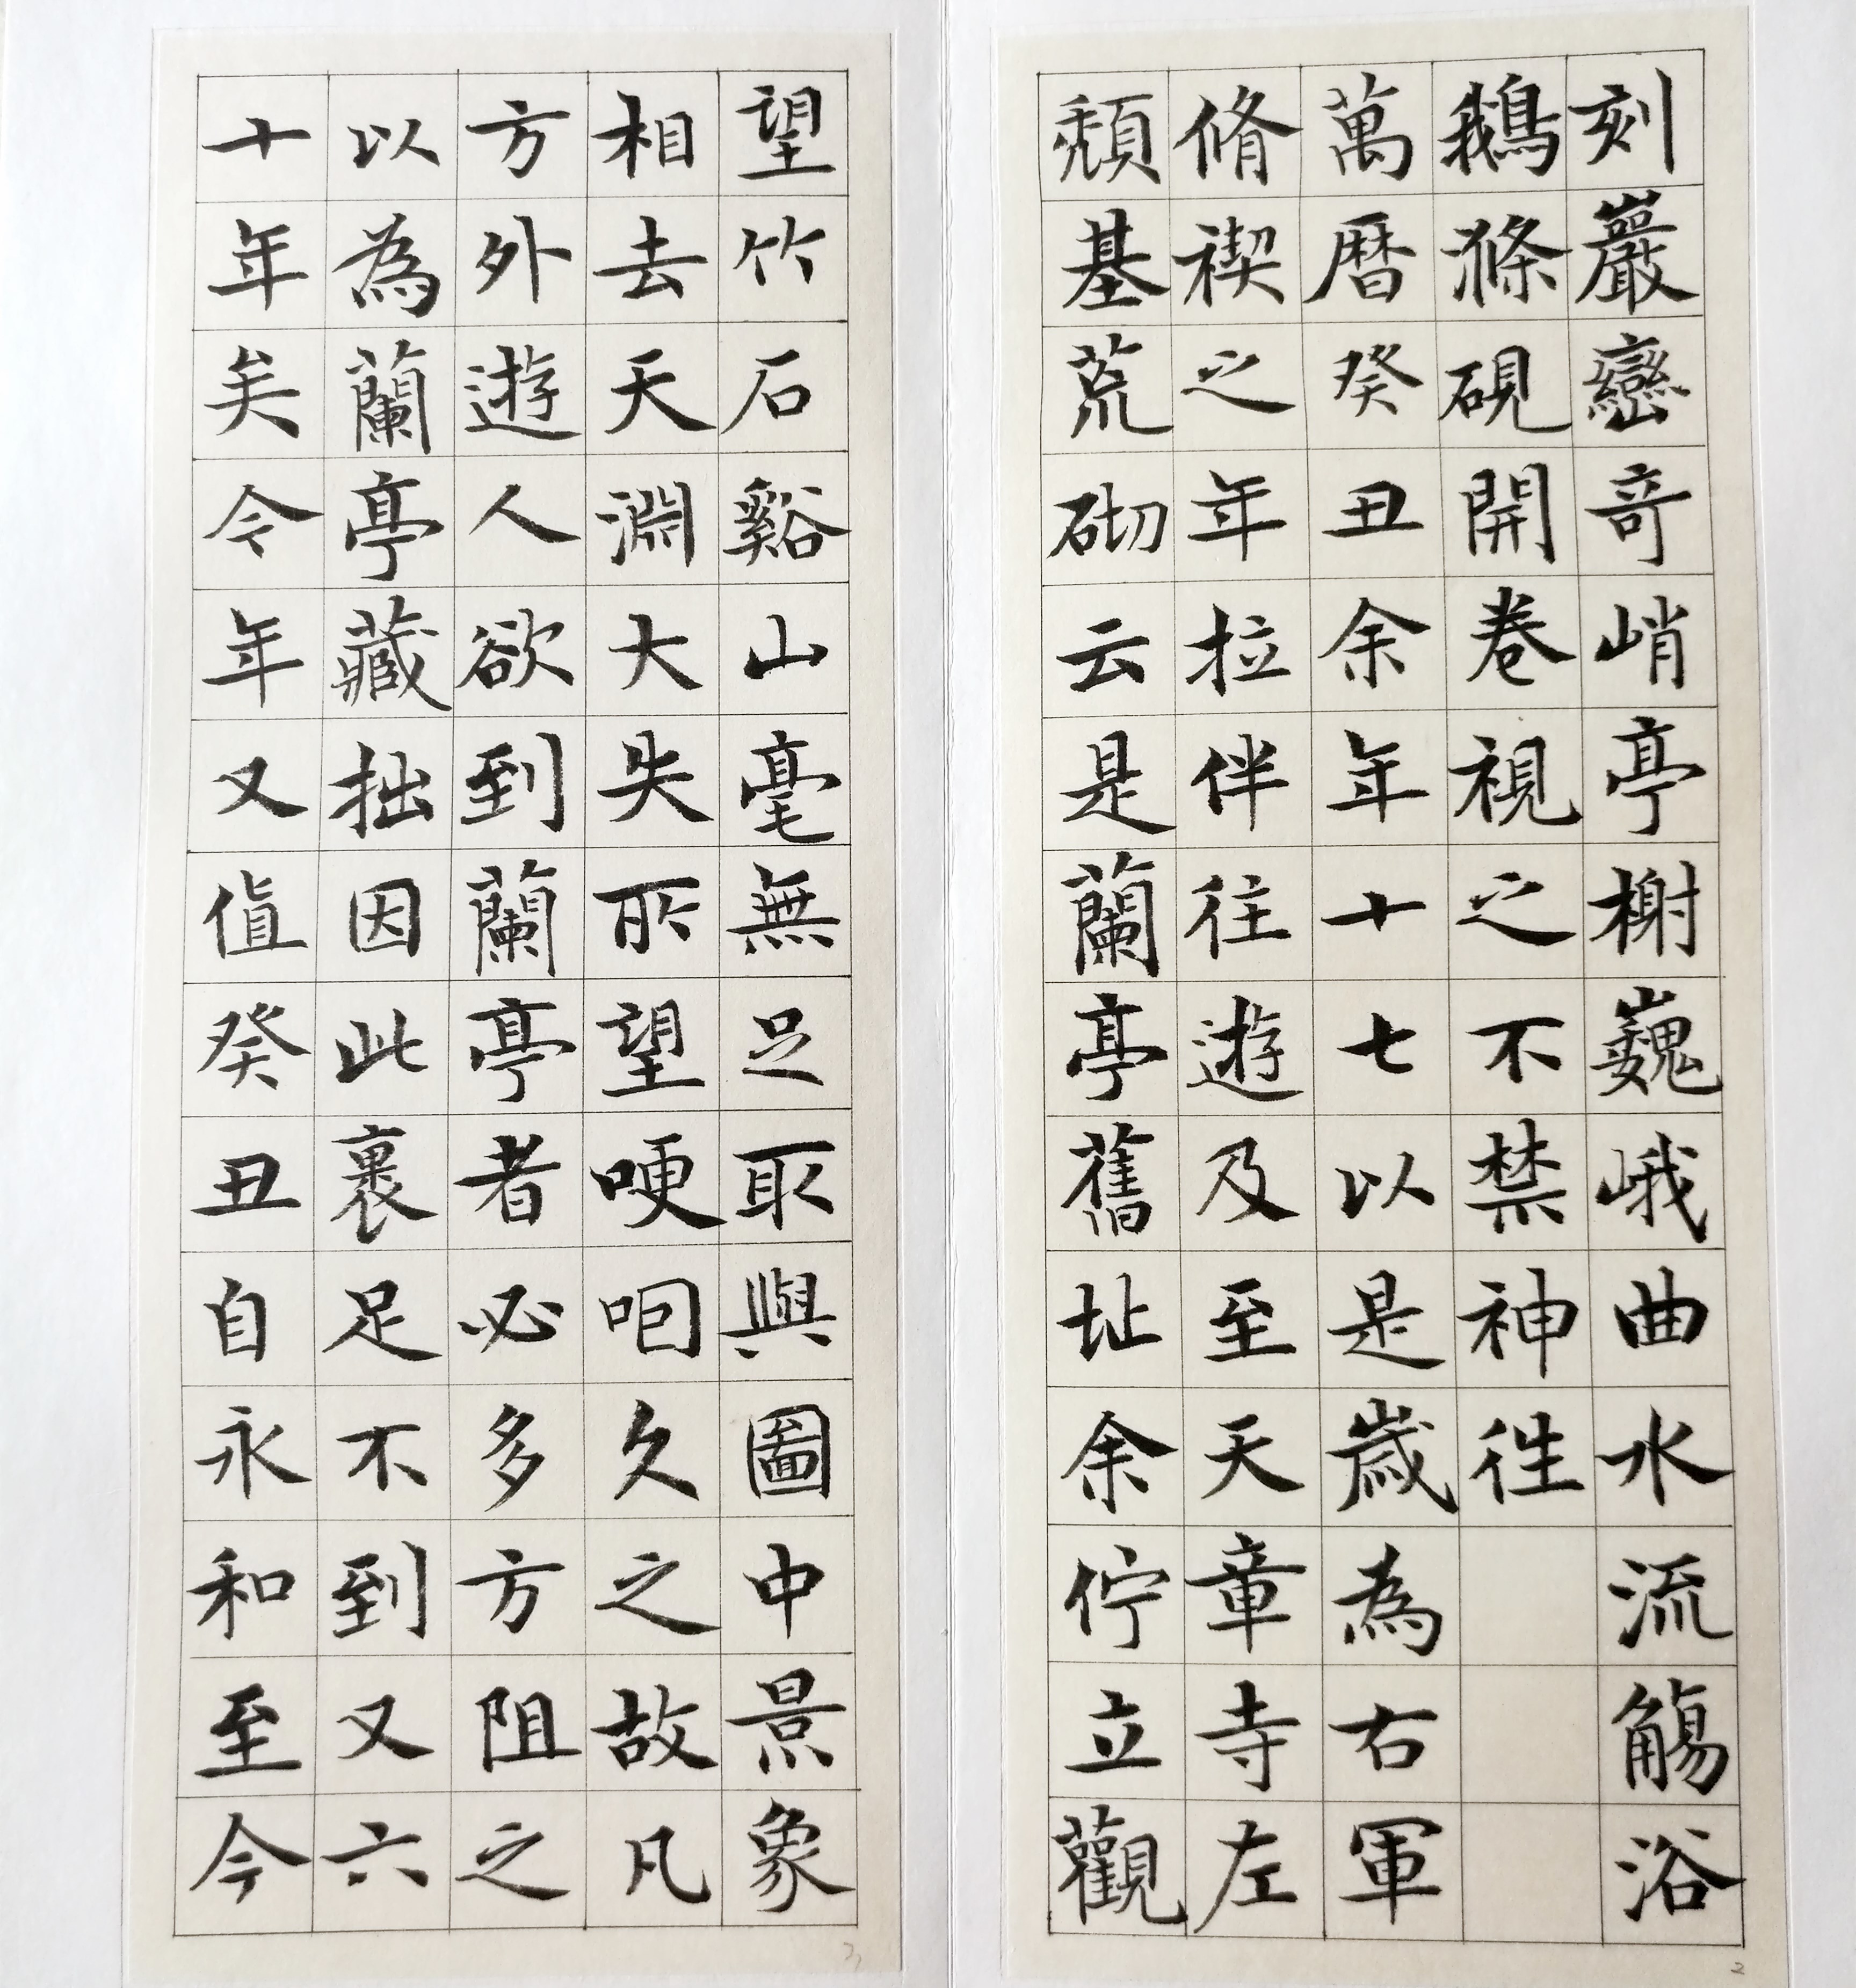 刻巖巒奇峭亭榭巍峨曲水流觴浴
鵝滌硯開卷視之不禁神往
萬曆癸丑余年十七以是歲為右軍
脩禊之年拉伴往遊及至天章寺左
頹基荒砌云是蘭亭舊址余佇立觀
望竹石谿山毫無足取與圖中景象
相去天淵大失所望哽咽久之故凡
方外遊人欲到蘭亭者必多方阻之
以為蘭亭藏拙因此裹足不到又六
十年矣今年又值癸丑自永和至今
2
3